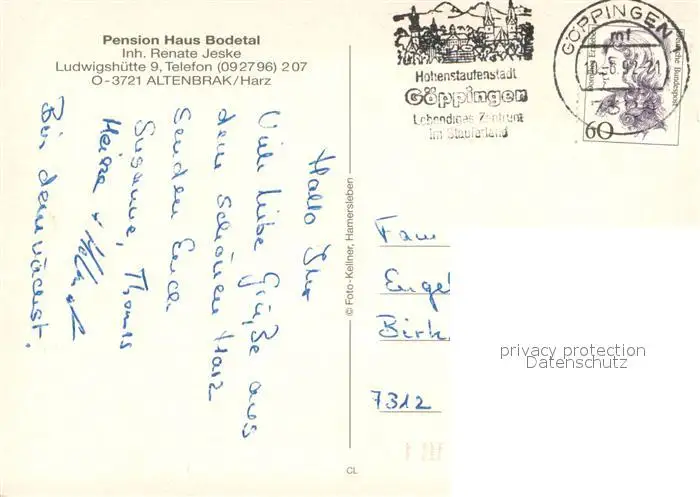 Pension Haus Bodetal
Inh. Renate Jeske
Ludwigshütte 9, Telefon (092796) 207
O-3721 ALTENBRAK/Harz
Hallo Ihr
Viele liebe Grüße aus
dem schönen Harz
senden Euch
Susanne, Thomas
Heinz +
Bis demnächst.
© Foto-Kellner, Hamersleben
CL
Hohenstaufenstadt
Göppingen
Lebendiges Zentrum
im Stauferland
GÖPPINGEN
mf
Deutsche Bundespost
60
Fam
Engel
Birk
7312
privacy protection
Datenschutz